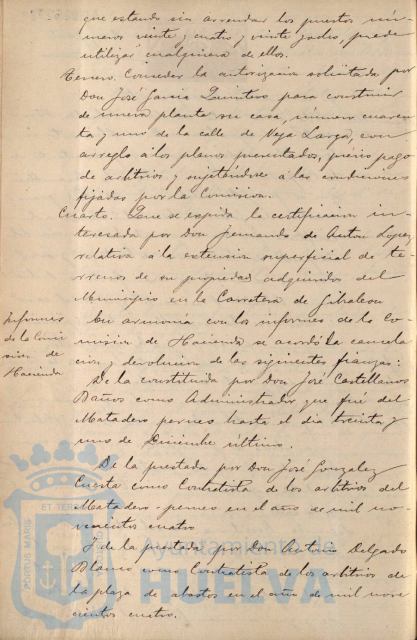 que estando sin arrendar los puestos nú-
meros veinte y cuatro y veinte y ocho, puede
utilizar cualquiera de ellos.
Tercero. Conceder la autorización solicitada por
Don José Garcia Quintero para construir
de nueva planta su casa, número cuaren-
ta y uno de la calle de Vega Larga, con
arreglo á los planos presentados, prévio pago
de arbitrios y sujetándose á las condiciones
fijadas por la Comision.
Cuarto. Que se expida la certificacion in-
teresada por Don Fernando de Anton Lopez
relativa á la extension superficial de te-
rrenos de su propiedad adquiridos del
Municipio en la Carretera de Gibraleon
Informes
de la Comi-
sion de
Hacienda
En armonía con los informes de la Co-
mision de Hacienda se acordó la cancela-
cion y devolucion de las siguientes fianzas:
De la constituida por Don José Castellanos
Baños como Administrador que fué del
Matadero perneo hasta el dia treinta y
uno de Diciembre último.
De la prestada por Don José Gonzalez
Cuesta como Contratista de los arbitrios del
Matadero-perneo en el año de mil no-
vecientos cuatro
Y de la prestada por Don Antonio Delgado
Blanco como Contratista de los arbitrios de
la plaza de abastos en el año de mil nove
cientos cuatro.
PORTUS MARIS
ET TERRAE
Ayuntamiento de
HUELVA